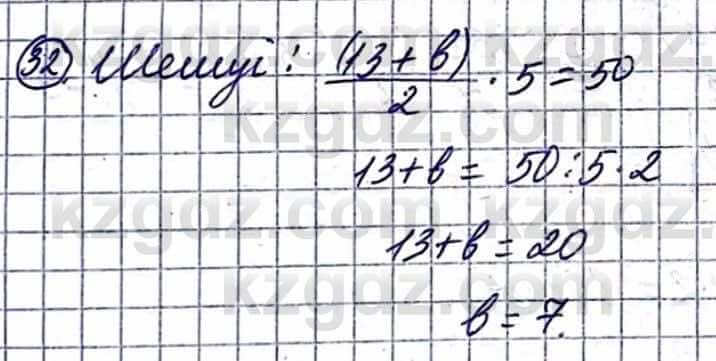 32. Шешуі: (13+b)/2 · 5 = 50
13+b = 50:5·2
13+b = 20
b = 7.
kzgdz.com kzgdz.com
kzgdz.com
kzgdz.com kzgdz.com
kzgdz.com